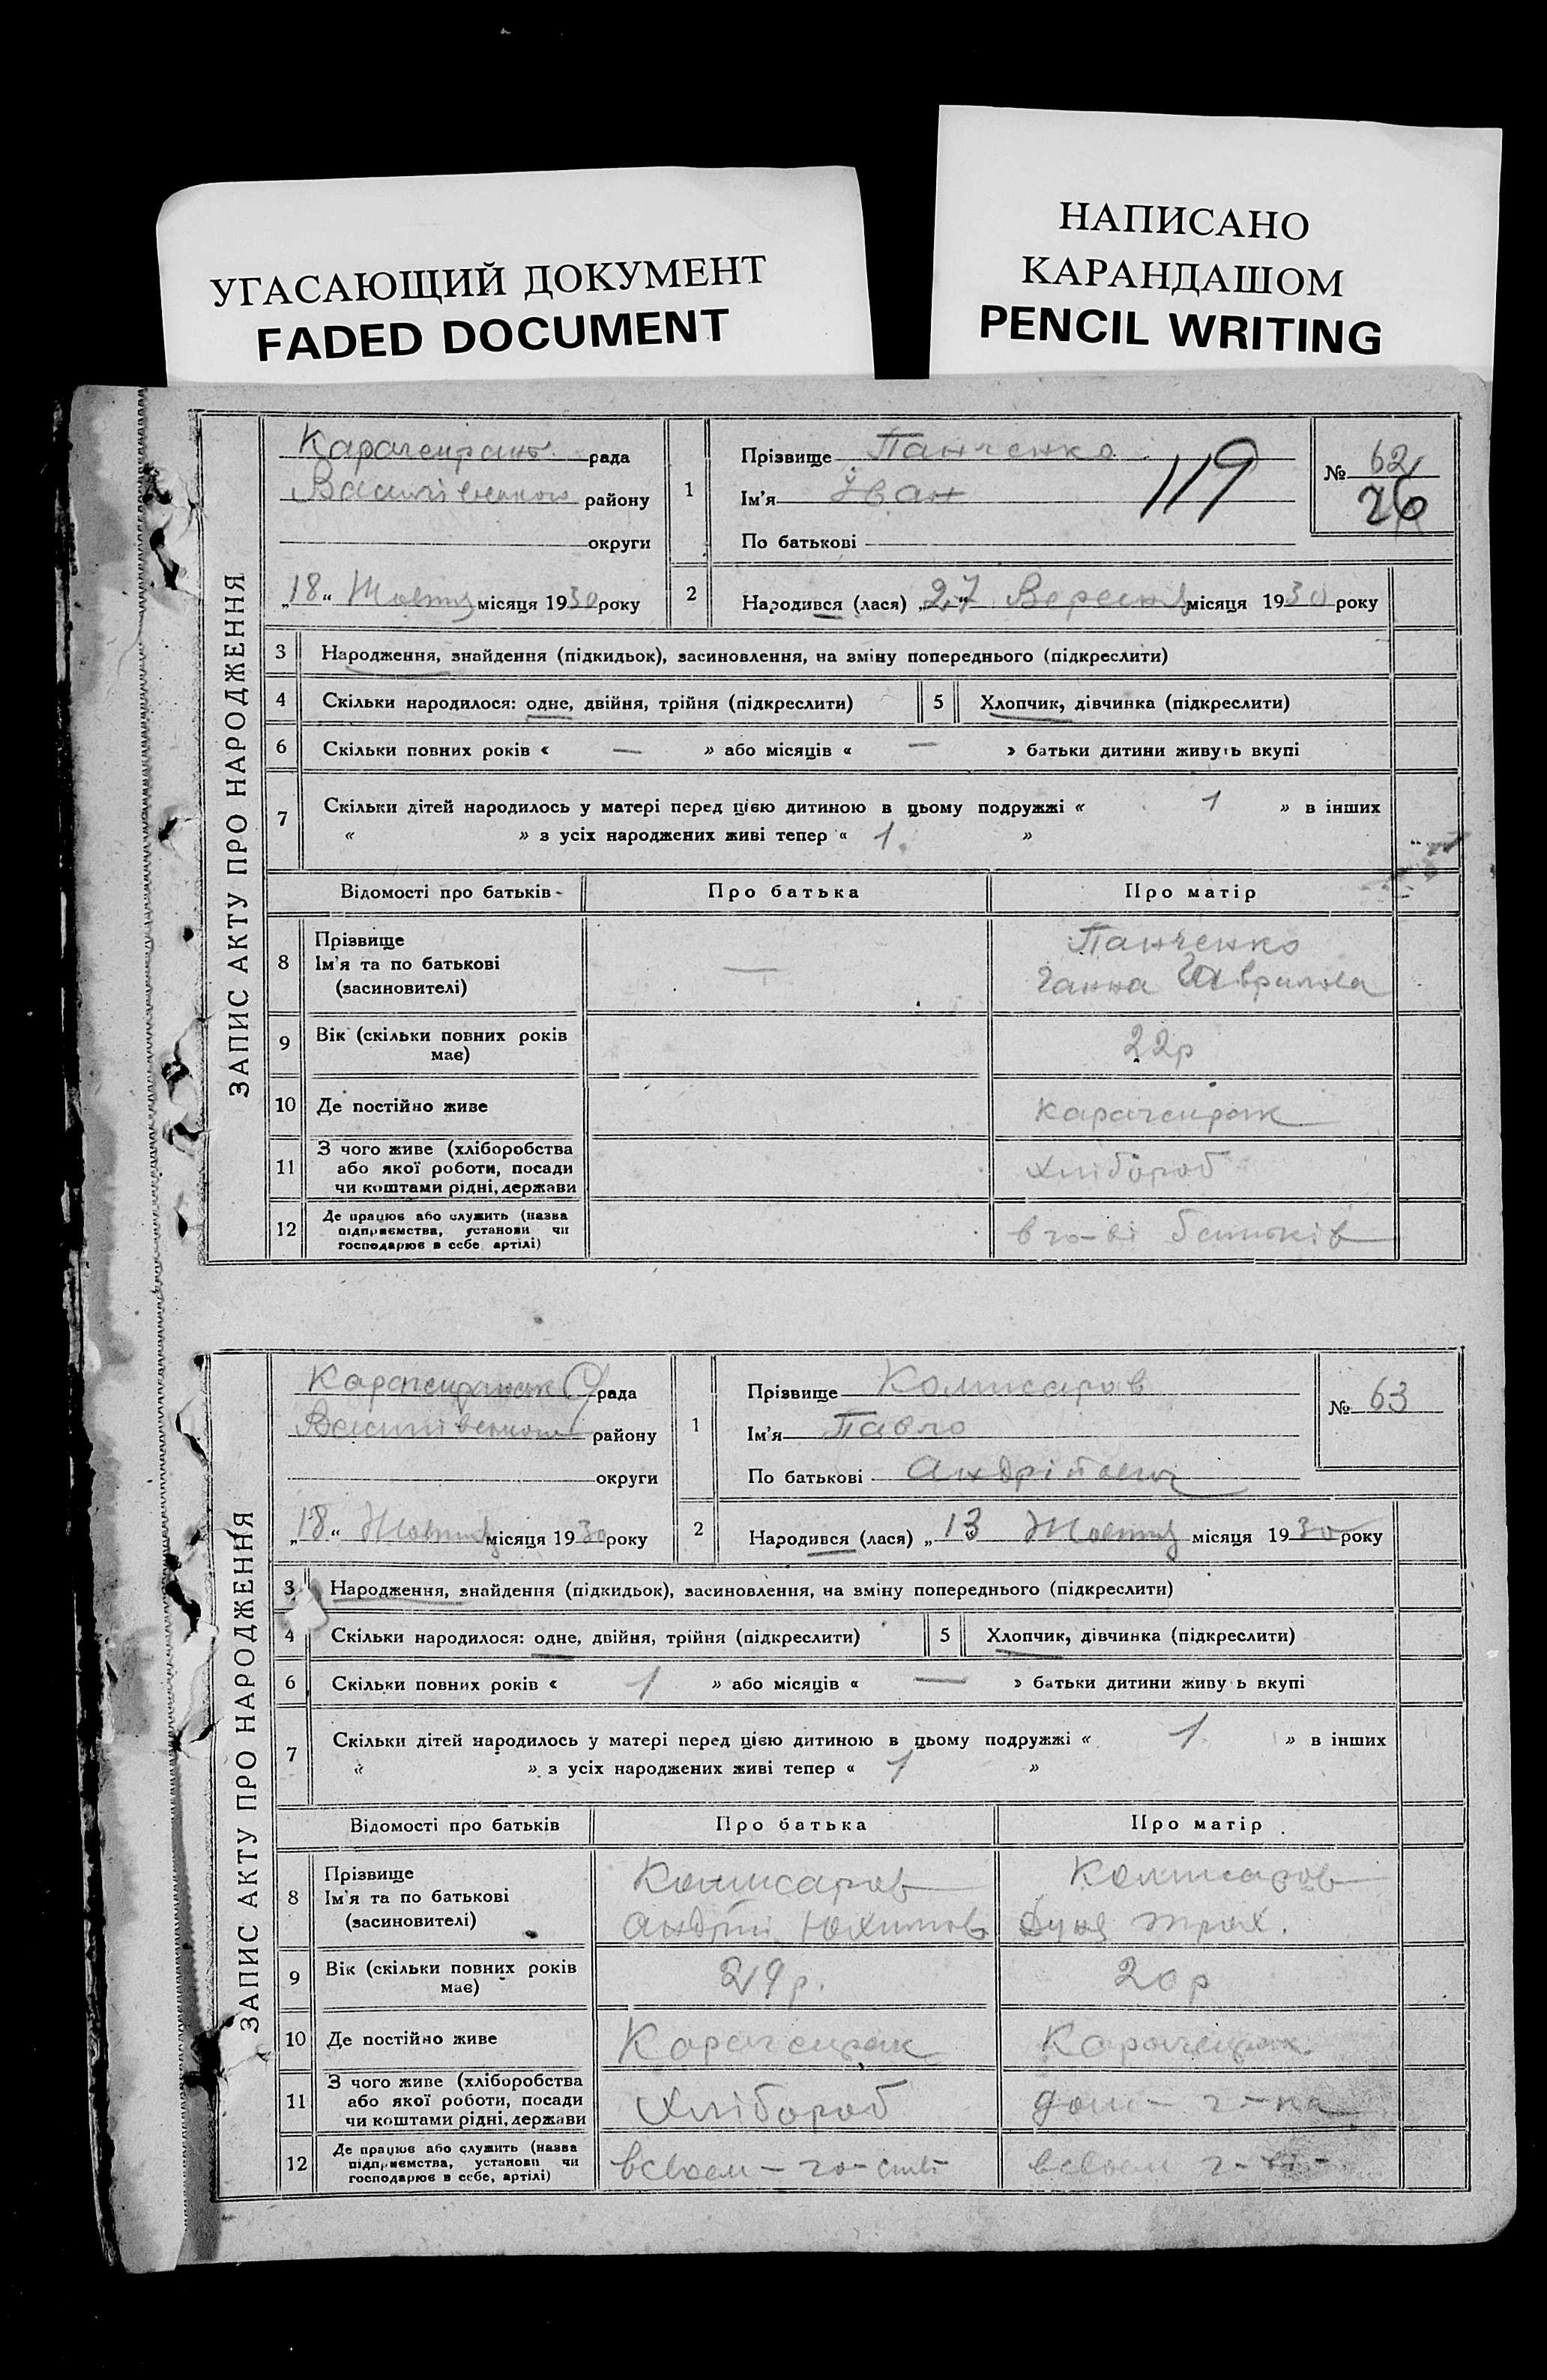 УГАСАЮЩИЙ ДОКУМЕНТ
FADED DOCUMENT
НАПИСАНО
КАРАНДАШОМ
PENCIL WRITING
ЗАПИС АКТУ ПРО НАРОДЖЕННЯ
рада
району
округи
„18“ Жовтня місяця 1930 року
1
Прізвище Панченко
Ім'я Іван
119
По батькові
№ 62
26
2
Народився (лася) „27“ Вересня місяця 1930 року
3 Народження, знайдення (підкидьок), засиновлення, на зміну попереднього (підкреслити)
4 Скільки народилося: одне, двійня, трійня (підкреслити) 5 Хлопчик, дівчинка (підкреслити)
6 Скільки повних років « — » або місяців « — » батьки дитини живуть вкупі
7 Скільки дітей народилось у матері перед цією дитиною в цьому подружжі « 1 » в інших
« » з усіх народжених живі тепер « 1 »
Відомості про батьків Про батька Про матір
8 Прізвище
Ім'я та по батькові
(засиновителі)
—
Панченко
Ганна Гаврилова
9 Вік (скільки повних років
має)
22р
10 Де постійно живе Карачекрак
11 З чого живе (хліборобства
або якої роботи, посади
чи коштами рідні, держави
Хлібороб
12 Де працює або служить (назва
підприємства, установи чи
господарює в себе, артілі)
в го-ві батьків
ЗАПИС АКТУ ПРО НАРОДЖЕННЯ
рада
району
округи
„18“ Жовтня місяця 1930 року
1
Прізвище Комисаров
Ім'я Павло
По батькові Андрійович
№ 63
2
Народився (лася) „13 Жовтня місяця 1930 року
3 Народження, знайдення (підкидьок), засиновлення, на зміну попереднього (підкреслити)
4 Скільки народилося: одне, двійня, трійня (підкреслити) 5 Хлопчик, дівчинка (підкреслити)
6 Скільки повних років « 1 » або місяців « — » батьки дитини живуть вкупі
7 Скільки дітей народилось у матері перед цією дитиною в цьому подружжі « 1 » в інших
« » з усіх народжених живі тепер « 1 »
Відомості про батьків Про батька Про матір
8 Прізвище
Ім'я та по батькові
(засиновителі)
Комисаров
Андрій Юхимов
Комисаров
Дуня Трох.
9 Вік (скільки повних років
має)
29р. 20р
10 Де постійно живе Карачекрак Карачекрак
11 З чого живе (хліборобства
або якої роботи, посади
чи коштами рідні, держави
Хлібороб дом-г-ка
12 Де працює або служить (назва
підприємства, установи чи
господарює в себе, артілі)
в своем
в своем